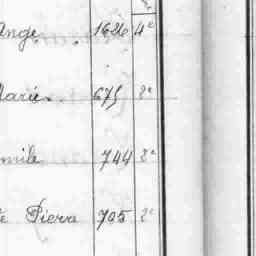 Ange. 1626 4e
Marie. 675 8e
mile 744 8e
Pierre 705 8e